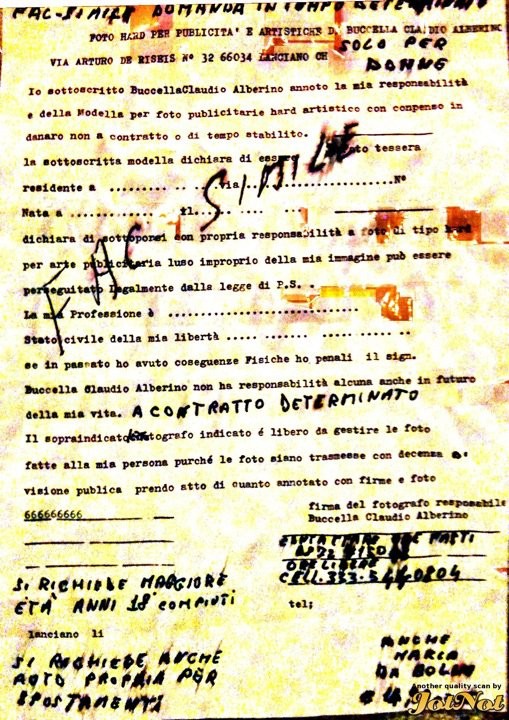 FAC-SIMILE DOMANDA IN TEMPO DETERMINATO
FOTO HARD PER PUBLICITA' E ARTISTICHE DI BUCCELLA CLAUDIO ALBERINO
SOLO PER
VIA ARTURO DE RISEIS N° 32 66034 LANCIANO CH
DONNE
Io sottoscritto BuccellaClaudio Alberino annoto la mia responsabilità
e della Modella per foto publicitarie hard artistico con conpenso in
danaro non a contratto o di tempo stabilito.
la sottoscritta modella dichiara di essere tessera
residente a ......... .. ..via.......................N°
Nata a ........... il...... ... ...
dichiara di sottoporsi con propria responsabilità a foto di tipo hard
per arte publicitaria luso improprio della mia immagine può essere
perseguitato legalmente dalla legge di P.S. .
La mia Professione è ..............................
Stato civile della mia libertà ..... ....... ........... ..
se in passato ho avuto coseguenze Fisiche ho penali il sign.
Buccella Claudio Alberino non ha responsabilità alcuna anche in futuro
della mia vita. A CONTRATTO DETERMINATO
Il sopraindicato fotografo indicato é libero da gestire le foto
fatte alla mia persona purché le foto siano trasmesse con decenza
visione publica prendo atto di quanto annotato con firme e foto
FAC SIMILE
firma del fotografo responsabile
666666666
Buccella Claudio Alberino
ORE LIBERE
CELL. 333-5440804
SI RICHIEDE MAGGIORE
ETÀ ANNI 18 COMPIUTI
tel;
lanciano li
SI RICHIEDE ANCHE
AUTO PROPRIA PER
SPOSTAMENTI
ANCHE
Another quality scan by
JotNot